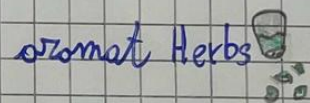 aromat Herbs